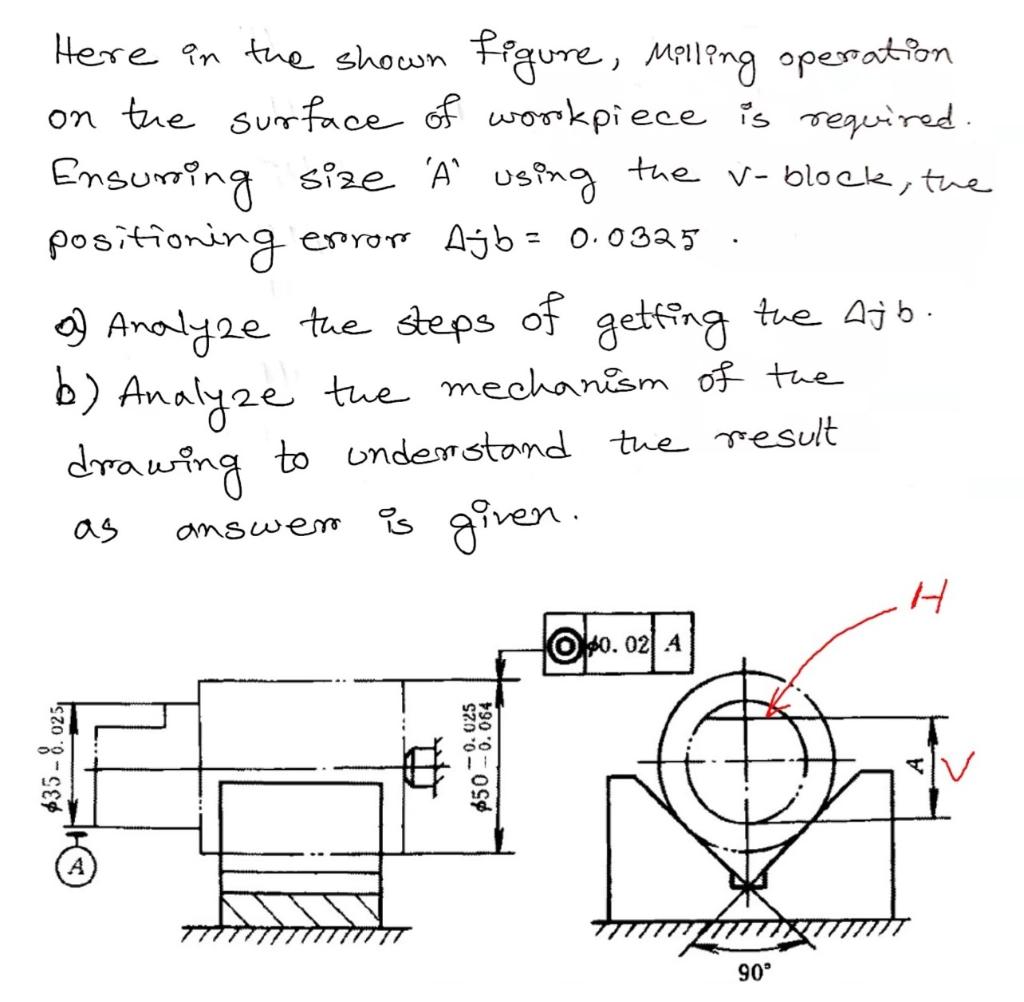 Here in the shown figure, Milling operation
on the surface of workpiece is required.
Ensuring size 'A' using the V-block, the
positioning error Δjb = 0.0325 .
a) Analyze the steps of getting the Δjb.
b) Analyze the mechanism of the
drawing to understand the result
as answer is given.
H
◎ ϕ0.02 A
ϕ35 0 -0.025
ϕ50 -0.025 -0.064
A
V
A
90°